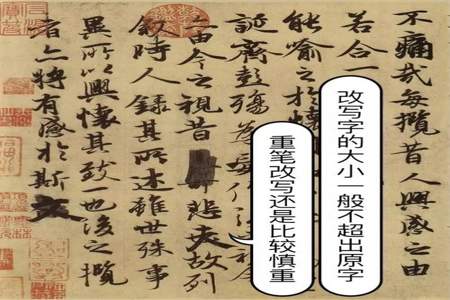 不痛哉每攬昔人興感之由
若合一
能喻之於懷
誕齊彭殤為妄
由今之視昔悲夫故列
敘時人錄其所述雖世殊事
異所以興懷其致一也後之攬
者亦將有感於斯文
改写字的大小一般不超出原字
重笔改写还是比较慎重